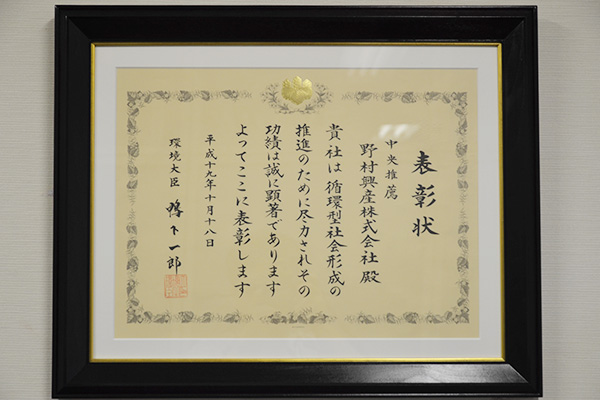 表彰状
中央推薦
野村興産株式会社 殿
貴社は循環型社会形成の
推進のために尽力されその
功績は誠に顕著であります
よってここに表彰します
平成十九年十月十八日
環境大臣 鴨下一郎